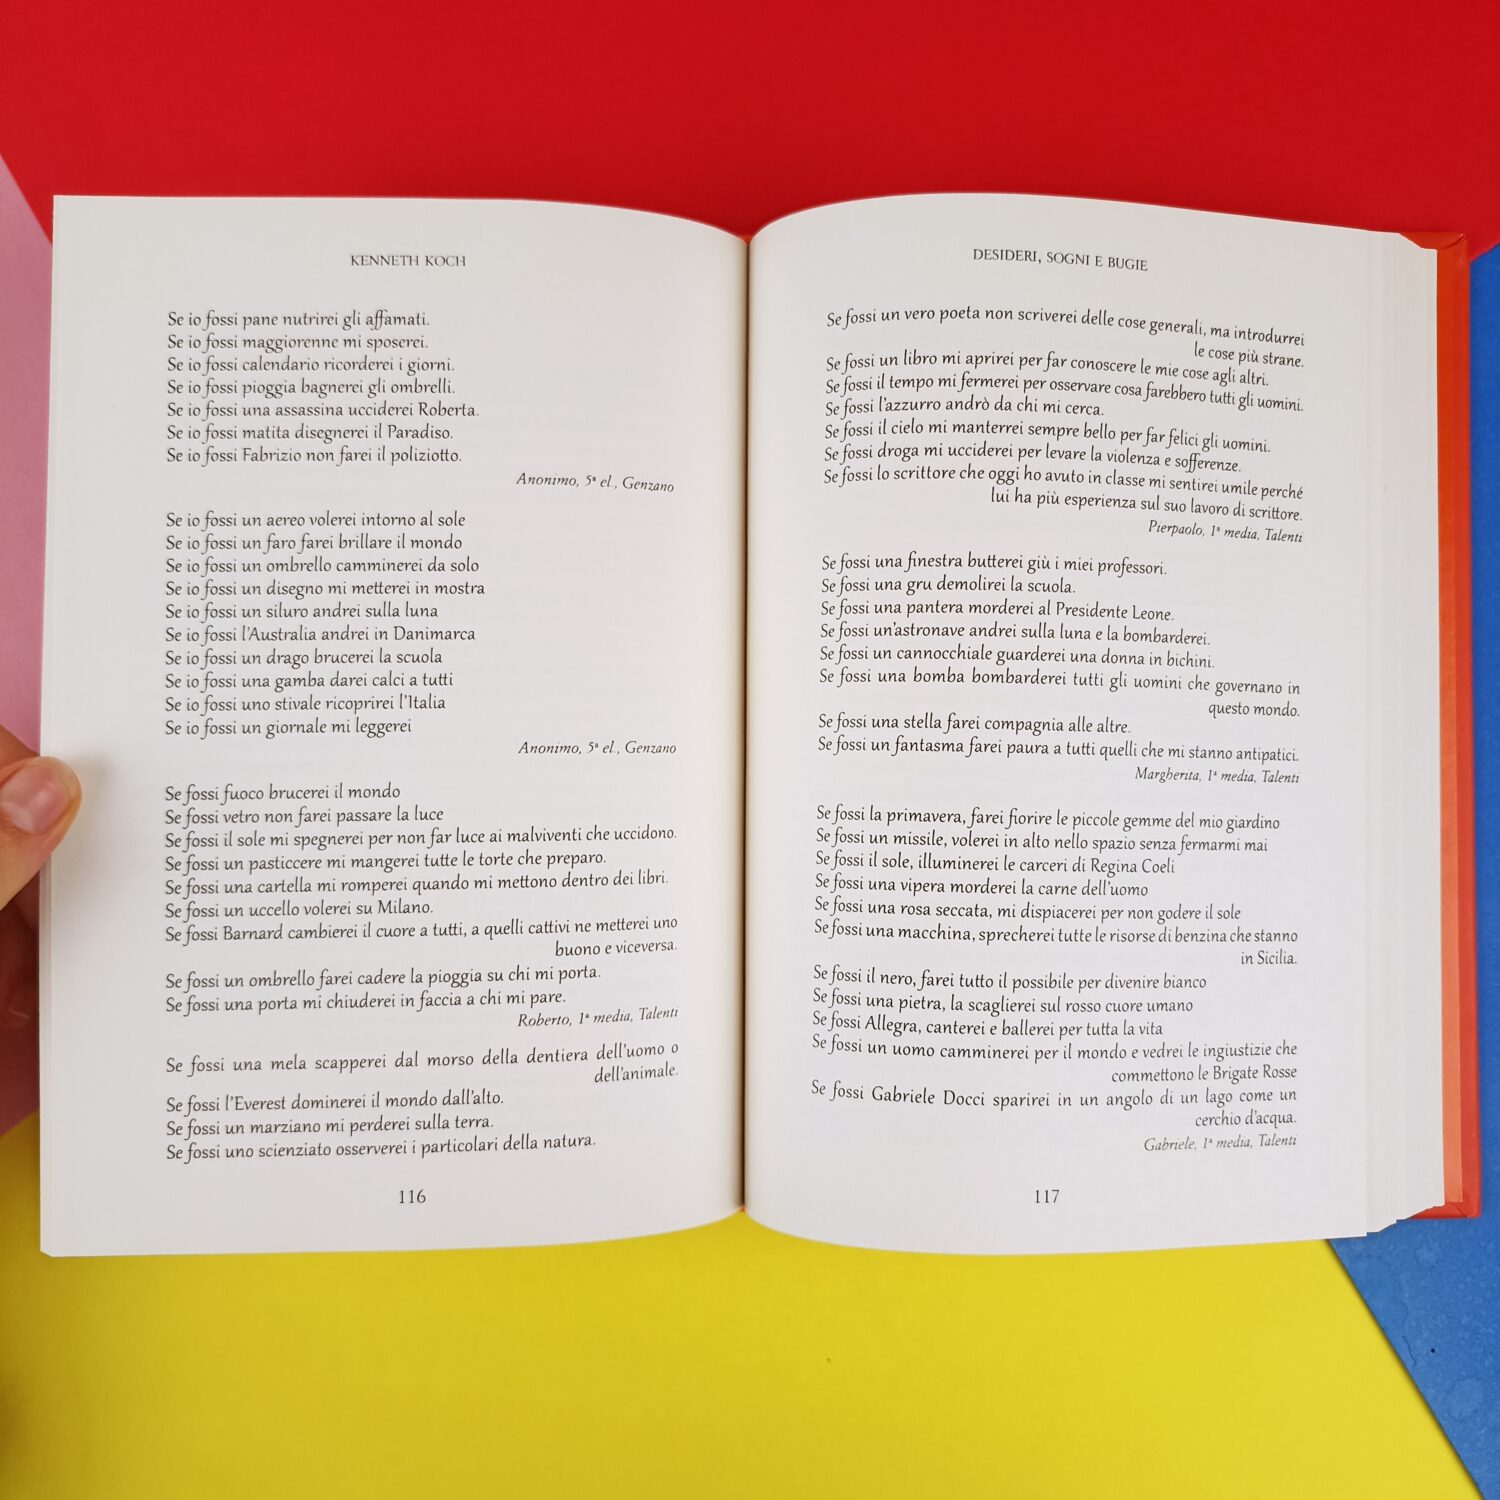 KENNETH KOCH
Se io fossi pane nutrirei gli affamati.
Se io fossi maggiorenne mi sposerei.
Se io fossi calendario ricorderei i giorni.
Se io fossi pioggia bagnerei gli ombrelli.
Se io fossi una assassina ucciderei Roberta.
Se io fossi matita disegnerei il Paradiso.
Se io fossi Fabrizio non farei il poliziotto.
Anonimo, 5ª el., Genzano
Se io fossi un aereo volerei intorno al sole
Se io fossi un faro farei brillare il mondo
Se io fossi un ombrello camminerei da solo
Se io fossi un disegno mi metterei in mostra
Se io fossi un siluro andrei sulla luna
Se io fossi l'Australia andrei in Danimarca
Se io fossi un drago brucerei la scuola
Se io fossi una gamba darei calci a tutti
Se io fossi uno stivale ricoprirei l'Italia
Se io fossi un giornale mi leggerei
Anonimo, 5ª el., Genzano
Se fossi fuoco brucerei il mondo
Se fossi vetro non farei passare la luce
Se fossi il sole mi spegnerei per non far luce ai malviventi che uccidono.
Se fossi un pasticcere mi mangerei tutte le torte che preparo.
Se fossi una cartella mi romperei quando mi mettono dentro dei libri.
Se fossi un uccello volerei su Milano.
Se fossi Barnard cambierei il cuore a tutti, a quelli cattivi ne metterei uno
buono e viceversa.
Se fossi un ombrello farei cadere la pioggia su chi mi porta.
Se fossi una porta mi chiuderei in faccia a chi mi pare.
Roberto, 1ª media, Talenti
Se fossi una mela scapperei dal morso della dentiera dell'uomo o
dell'animale.
Se fossi l'Everest dominerei il mondo dall'alto.
Se fossi un marziano mi perderei sulla terra.
Se fossi uno scienziato osserverei i particolari della natura.
116
DESIDERI, SOGNI E BUGIE
Se fossi un vero poeta non scriverei delle cose generali, ma introdurrei
le cose più strane.
Se fossi un libro mi aprirei per far conoscere le mie cose agli altri.
Se fossi il tempo mi fermerei per osservare cosa farebbero tutti gli uomini.
Se fossi l'azzurro andrò da chi mi cerca.
Se fossi il cielo mi manterrei sempre bello per far felici gli uomini.
Se fossi droga mi ucciderei per levare la violenza e sofferenze.
Se fossi lo scrittore che oggi ho avuto in classe mi sentirei umile perché
lui ha più esperienza sul suo lavoro di scrittore.
Pierpaolo, 1ª media, Talenti
Se fossi una finestra butterei giù i miei professori.
Se fossi una gru demolirei la scuola.
Se fossi una pantera morderei al Presidente Leone.
Se fossi un'astronave andrei sulla luna e la bombarderei.
Se fossi un cannocchiale guarderei una donna in bichini.
Se fossi una bomba bombarderei tutti gli uomini che governano in
questo mondo.
Se fossi una stella farei compagnia alle altre.
Se fossi un fantasma farei paura a tutti quelli che mi stanno antipatici.
Margherita, 1ª media, Talenti
Se fossi la primavera, farei fiorire le piccole gemme del mio giardino
Se fossi un missile, volerei in alto nello spazio senza fermarmi mai
Se fossi il sole, illuminerei le carceri di Regina Coeli
Se fossi una vipera morderei la carne dell'uomo
Se fossi una rosa seccata, mi dispiacerei per non godere il sole
Se fossi una macchina, sprecherei tutte le risorse di benzina che stanno
in Sicilia.
Se fossi il nero, farei tutto il possibile per divenire bianco
Se fossi una pietra, la scaglierei sul rosso cuore umano
Se fossi Allegra, canterei e ballerei per tutta la vita
Se fossi un uomo camminerei per il mondo e vedrei le ingiustizie che
commettono le Brigate Rosse
Se fossi Gabriele Docci sparirei in un angolo di un lago come un
cerchio d'acqua.
Gabriele, 1ª media, Talenti
117